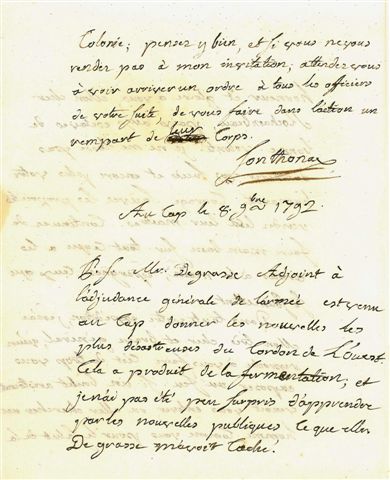 Colonie; pensez y bien, et si vous ne vous
rendez pas à mon invitation, attendez vous
à voir arriver un ordre à tous les officiers
de votre suite, de vous faire dans l'action un
rempart de leur Corps.
Sonthonax
Au Cap le 8 9bre 1792.
P.S. Mr. Degrasse Adjoint à
l'adjudance générale de l'armée est venu
au Cap donner les nouvelles les
plus désastreuses du Cordon de L'Ouest.
Cela a produit de la fermentation, et
je n'ai pas été peu surpris d'apprendre
par les nouvelles publiques ce que Mr.
De grasse m'avoit Caché.